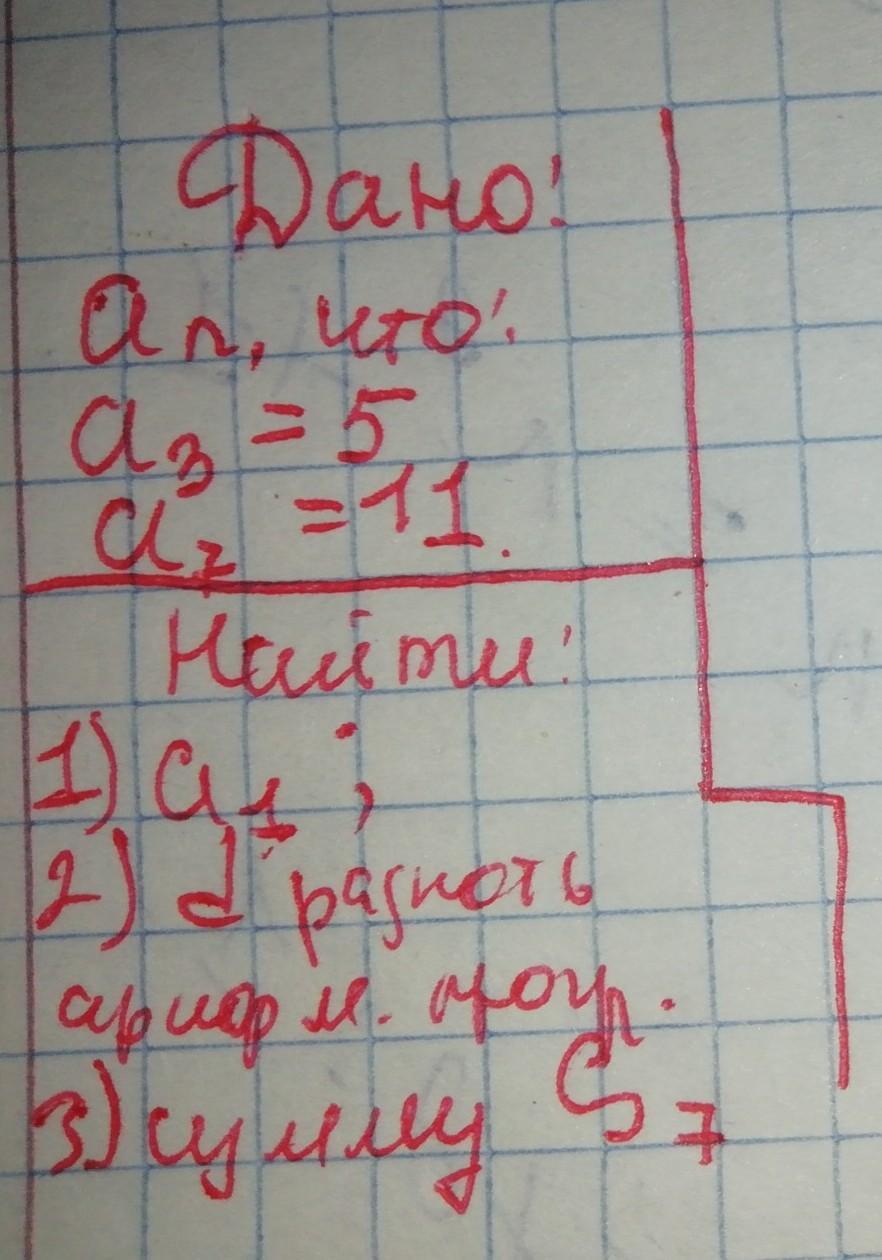 Дано:
aₙ, что:
a₃ = 5
a₇ = 11.
Найти:
1) a₁;
2) d разноть
арифм. прогр.
3) сумму S₇